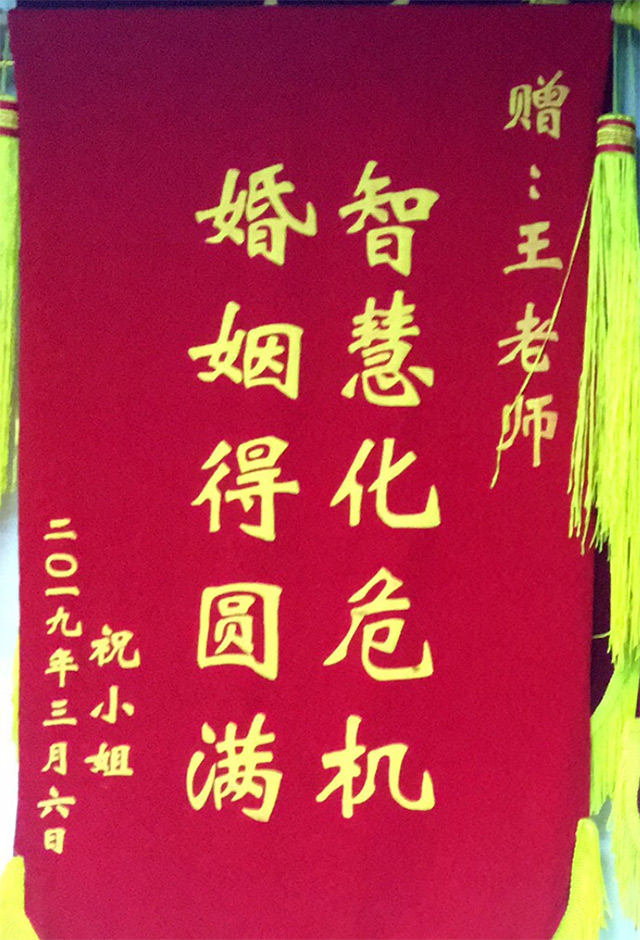 赠：王老师
智慧化危机
婚姻得圆满
祝小姐
二〇一九年三月六日